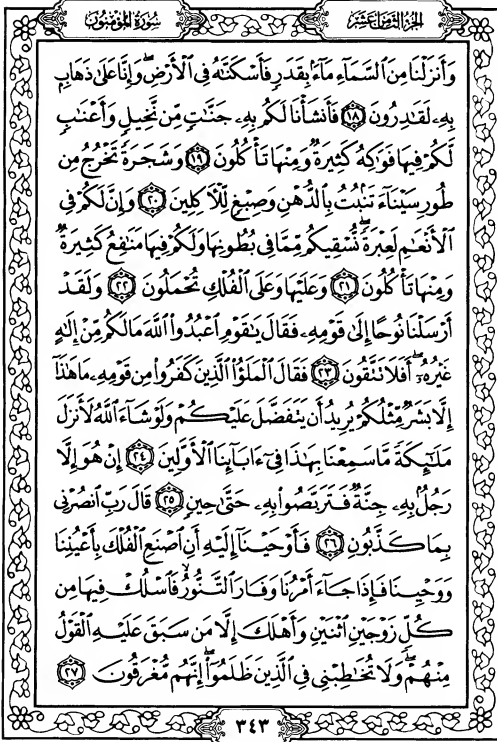 سُورَةُ المُؤْمِنُون
الجُزْءُ الثَّامِنَ عَشَر
وَأَنزَلْنَا مِنَ السَّمَاءِ مَاءً بِقَدَرٍ فَأَسْكَنَّاهُ فِي الْأَرْضِ ۖ وَإِنَّا عَلَىٰ ذَهَابٍ
بِهِۦ لَقَادِرُونَ ۝١٨ فَأَنشَأْنَا لَكُم بِهِۦ جَنَّاتٍ مِّن نَّخِيلٍ وَأَعْنَابٍ
لَّكُمْ فِيهَا فَوَاكِهُ كَثِيرَةٌ وَمِنْهَا تَأْكُلُونَ ۝١٩ وَشَجَرَةً تَخْرُجُ مِن
طُورِ سَيْنَاءَ تَنبُتُ بِالدُّهْنِ وَصِبْغٍ لِّلْآكِلِينَ ۝٢٠ وَإِنَّ لَكُمْ فِي
الْأَنْعَامِ لَعِبْرَةً ۖ نُّسْقِيكُم مِّمَّا فِي بُطُونِهَا وَلَكُمْ فِيهَا مَنَافِعُ كَثِيرَةٌ
وَمِنْهَا تَأْكُلُونَ ۝٢١ وَعَلَيْهَا وَعَلَى الْفُلْكِ تُحْمَلُونَ ۝٢٢ وَلَقَدْ
أَرْسَلْنَا نُوحًا إِلَىٰ قَوْمِهِۦ فَقَالَ يَٰقَوْمِ اعْبُدُوا اللَّهَ مَا لَكُم مِّنْ إِلَٰهٍ
غَيْرُهُۥٓ ۖ أَفَلَا تَتَّقُونَ ۝٢٣ فَقَالَ الْمَلَؤُا الَّذِينَ كَفَرُوا مِن قَوْمِهِۦ مَا هَٰذَا
إِلَّا بَشَرٌ مِّثْلُكُمْ يُرِيدُ أَن يَتَفَضَّلَ عَلَيْكُمْ وَلَوْ شَاءَ اللَّهُ لَأَنزَلَ
مَلَٰئِكَةً مَّا سَمِعْنَا بِهَٰذَا فِي ءَابَائِنَا الْأَوَّلِينَ ۝٢٤ إِنْ هُوَ إِلَّا
رَجُلٌ بِهِۦ جِنَّةٌ فَتَرَبَّصُوا بِهِۦ حَتَّىٰ حِينٍ ۝٢٥ قَالَ رَبِّ انصُرْنِي
بِمَا كَذَّبُونِ ۝٢٦ فَأَوْحَيْنَا إِلَيْهِ أَنِ اصْنَعِ الْفُلْكَ بِأَعْيُنِنَا
وَوَحْيِنَا فَإِذَا جَاءَ أَمْرُنَا وَفَارَ التَّنُّورُ ۙ فَاسْلُكْ فِيهَا مِن
كُلٍّ زَوْجَيْنِ اثْنَيْنِ وَأَهْلَكَ إِلَّا مَن سَبَقَ عَلَيْهِ الْقَوْلُ
مِنْهُمْ ۖ وَلَا تُخَاطِبْنِي فِي الَّذِينَ ظَلَمُوا ۖ إِنَّهُم مُّغْرَقُونَ ۝٢٧
٣٤٣